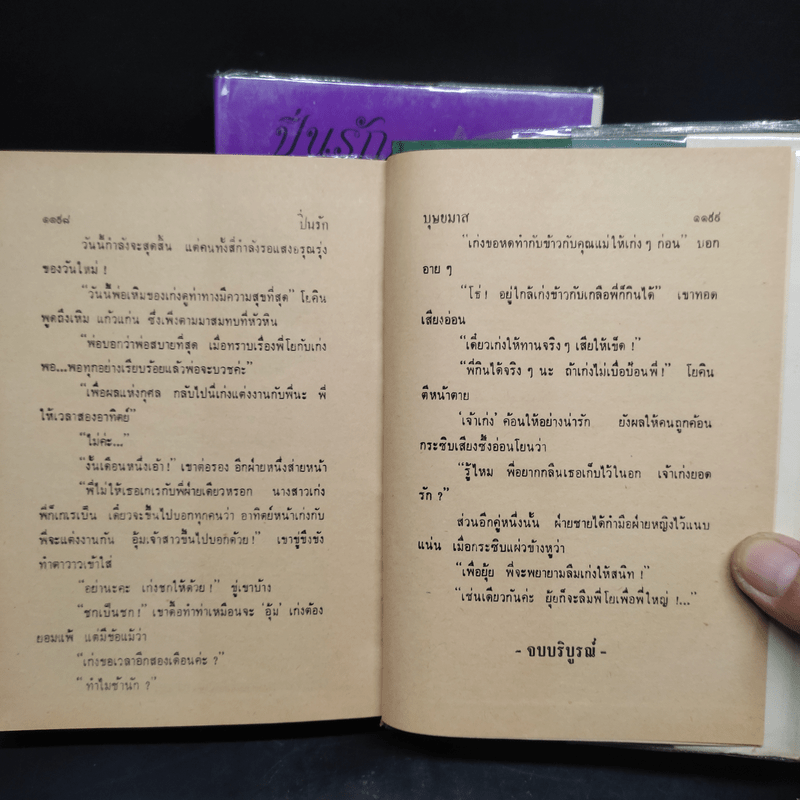 ปิ่นรัก
๑๑๙๘ ปิ่นรัก
วันนี้กำลังจะสุดสิ้น แต่คนทั้งสี่กำลังรอแสงอรุณรุ่ง
ของวันใหม่ !
“วันนี้พ่อเหิมของเก่งดูท่าทางมีความสุขที่สุด” โยคิน
พูดถึงเหิม แก้วแก่น ซึ่งเพิ่งตามมาสมทบที่หัวหิน
“พ่อบอกว่าพ่อสบายที่สุด เมื่อทราบเรื่องพี่โยกับเก่ง
พอ...พอทุกอย่างเรียบร้อยแล้วพ่อจะบวชค่ะ”
“เพื่อผลแห่งกุศล กลับไปนี่เก่งแต่งงานกับพี่นะ พี่
ให้เวลาสองอาทิตย์”
“ไม่ค่ะ...”
“งั้นเดือนหนึ่งเอ้า !” เขาต่อรอง อีกฝ่ายหนึ่งส่ายหน้า
“พี่ไม่ให้เธอเกเรกับพี่ฝ่ายเดียวหรอก นางสาวเก่ง
พี่ก็เกเรเป็น เดี๋ยวจะขึ้นไปบอกทุกคนว่า อาทิตย์หน้าเก่งกับ
พี่จะแต่งงานกัน อุ้มเจ้าสาวขึ้นไปบอกด้วย !” เขาขู่ขึงขัง
ทำตาวาวเข้าใส่
“อย่านะคะ เก่งชกให้ด้วย !” ขู่เขาบ้าง
“ชกเป็นชก !” เขาดื้อทำท่าเหมือนจะ ‘อุ้ม’ เก่งต้อง
ยอมแพ้ แต่มีข้อแม้ว่า
“เก่งขอเวลาอีกสองเดือนค่ะ ?”
“ทำไมช้านัก ?”
บุษยมาส ๑๑๙๙
“เก่งขอหัดทำกับข้าวกับคุณแม่ให้เก่ง ๆ ก่อน” บอก
อาย ๆ
“โธ่ ! อยู่ใกล้เก่งข้าวกับเกลือพี่ก็กินได้” เขาทอด
เสียงอ่อน
“เดี๋ยวเก่งให้ทานจริง ๆ เสียให้เข็ด !”
“พี่กินได้จริง ๆ นะ ถ้าเก่งไม่เบื่อป้อนพี่ !” โยคิน
ตีหน้าตาย
‘เจ้าเก่ง’ ค้อนให้อย่างน่ารัก ยังผลให้คนถูกค้อน
กระซิบเสียงซึ้งอ่อนโยนว่า
“รู้ไหม พี่อยากกลืนเธอเก็บไว้ในอก เจ้าเก่งยอด
รัก ?”
ส่วนอีกคู่หนึ่งนั้น ฝ่ายชายได้กำมือฝ่ายหญิงไว้แนบ
แน่น เมื่อกระซิบแผ่วข้างหูว่า
“เพื่อยุ้ย พี่จะพยายามลืมเก่งให้สนิท !”
“เช่นเดียวกันค่ะ ยุ้ยก็จะลืมพี่โยเพื่อพี่ใหญ่ !...”
- จบบริบูรณ์ -